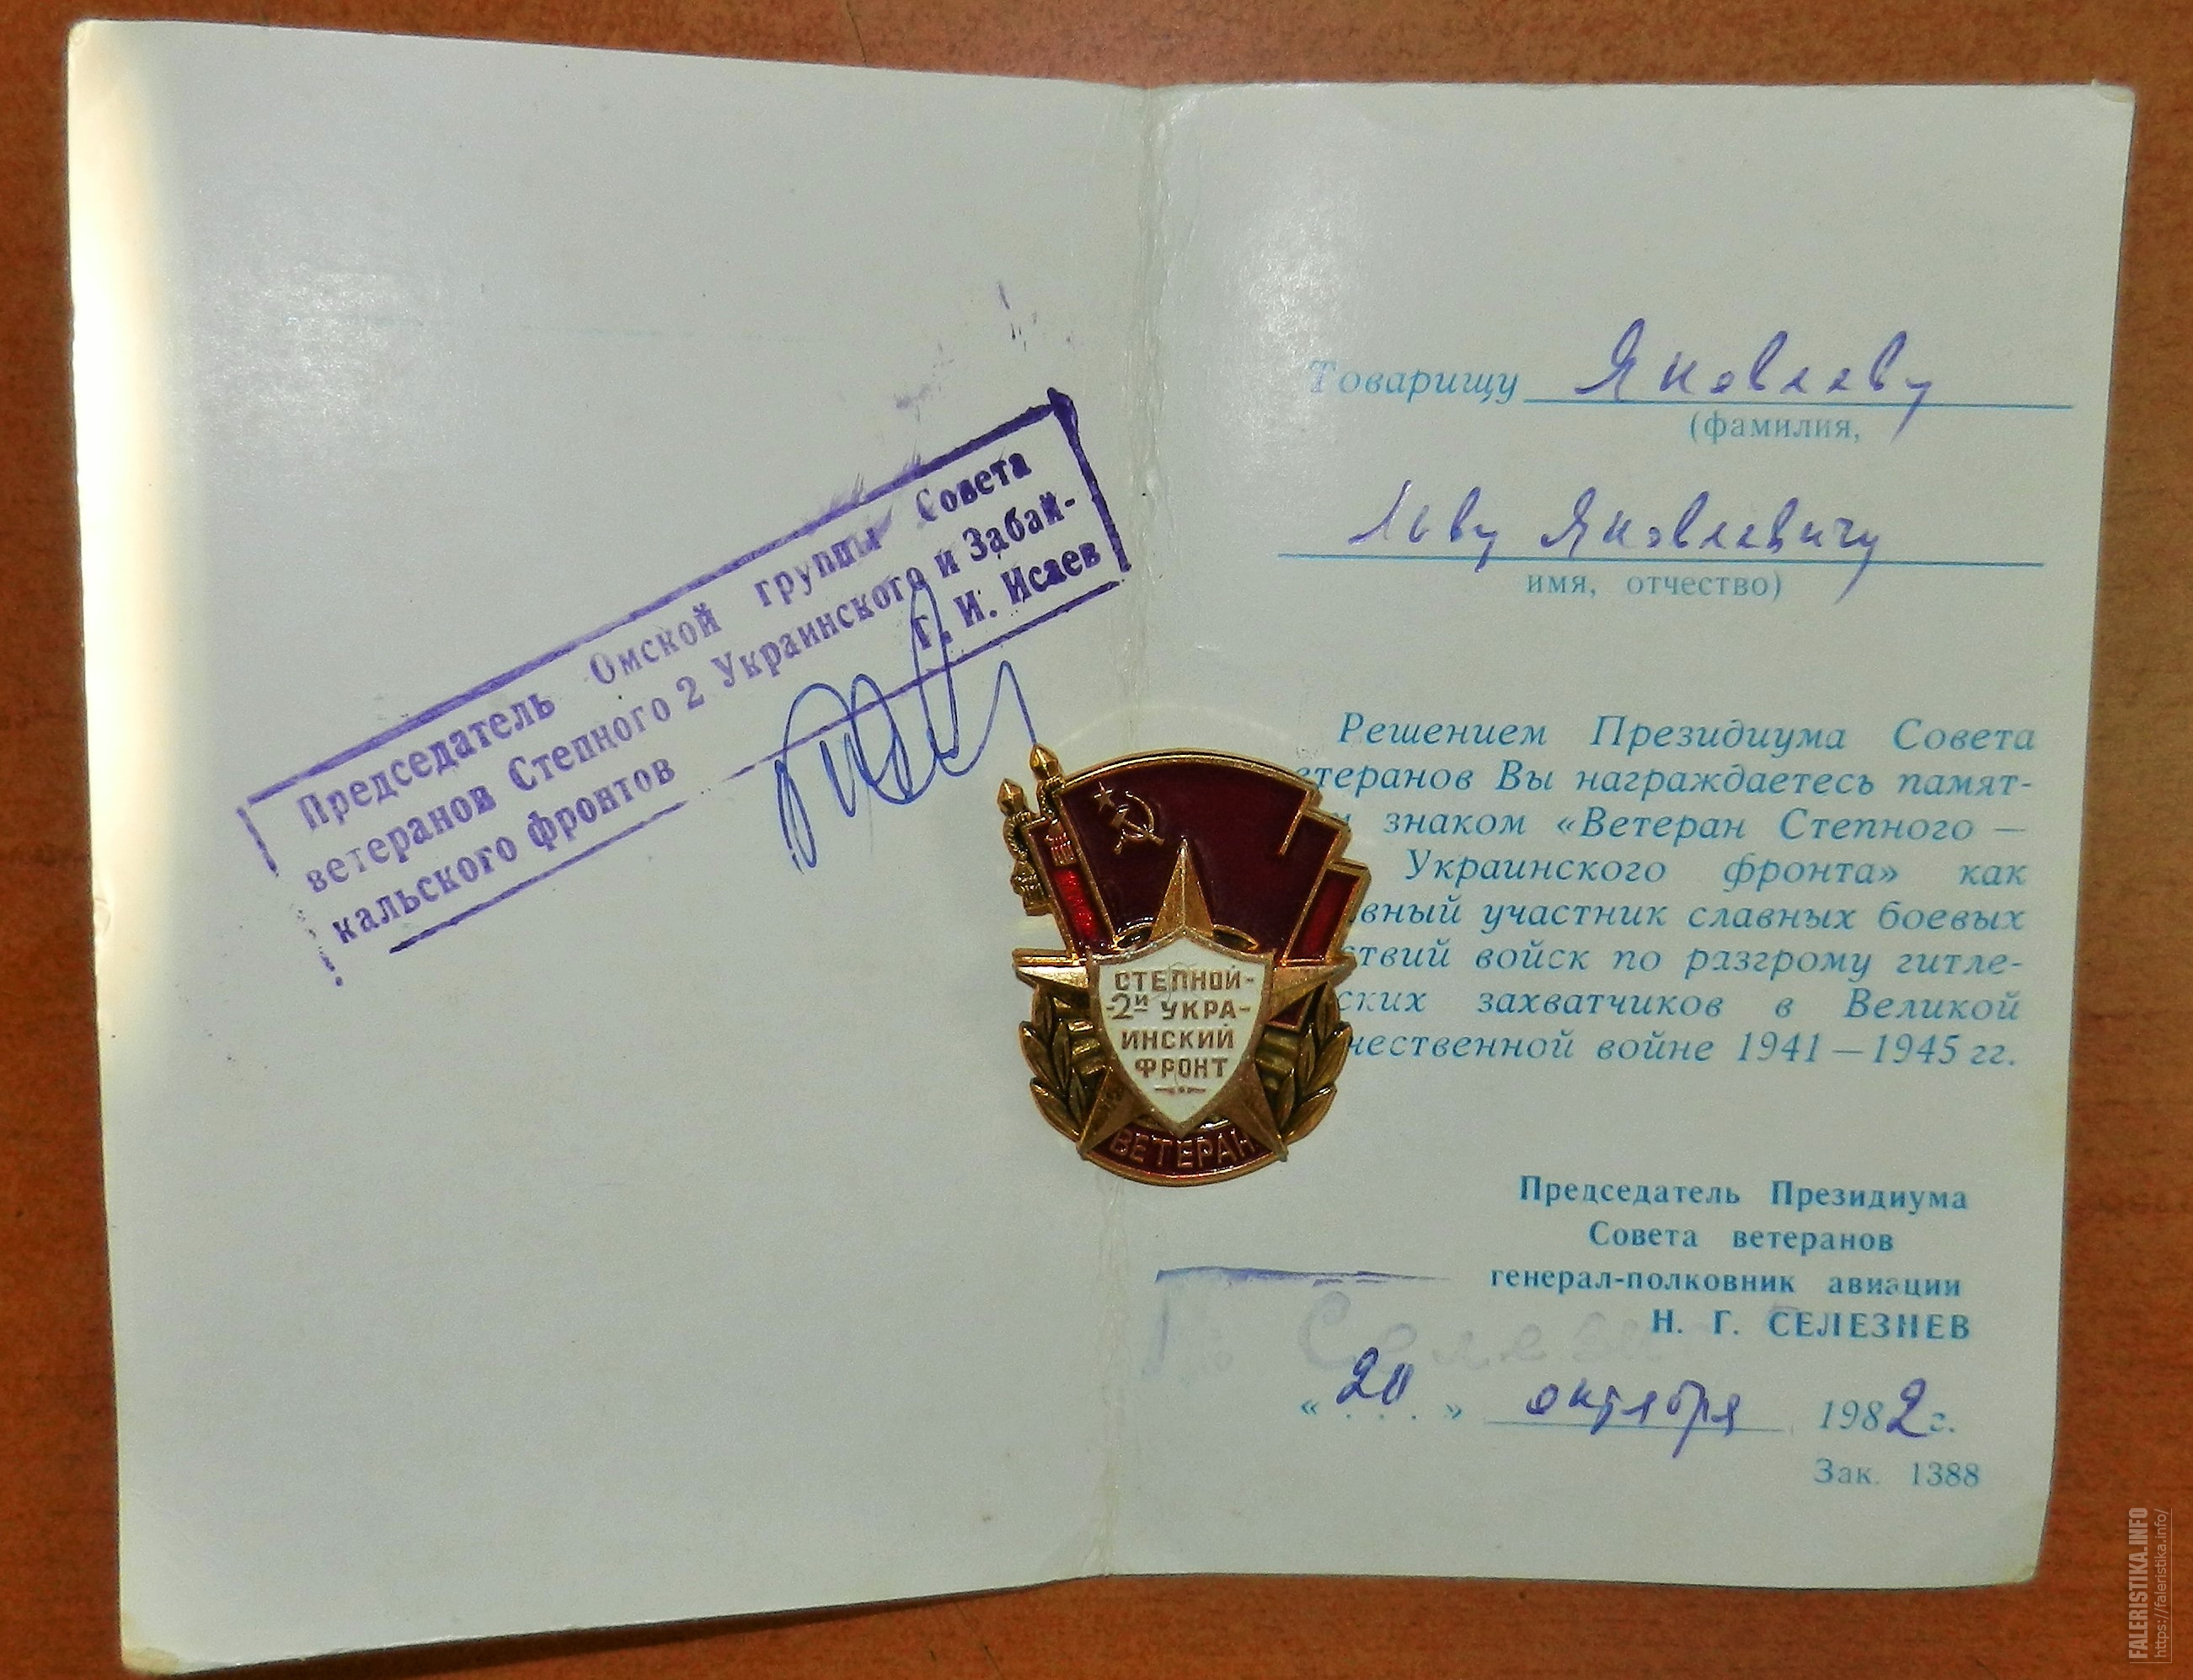 Председатель Омской группы Совета
ветеранов Степного 2 Украинского и Забай-
кальского фронтов Г. И. Исаев
Товарищу Яковлеву
(фамилия,
Льву Яковлевичу
имя, отчество)
Решением Президиума Совета
етеранов Вы награждаетесь памят-
м знаком «Ветеран Степного —
Украинского фронта» как
вный участник славных боевых
ствий войск по разгрому гитле-
ских захватчиков в Великой
чественной войне 1941—1945 гг.
СТЕПНОЙ-
-2й УКРА-
ИНСКИЙ
ФРОНТ
ВЕТЕРАН
Председатель Президиума
Совета ветеранов
генерал-полковник авиации
Н. Г. СЕЛЕЗНЕВ
«20» октября 1982 г.
Зак. 1388
FALERISTIKA.INFO
https://faleristika.info/